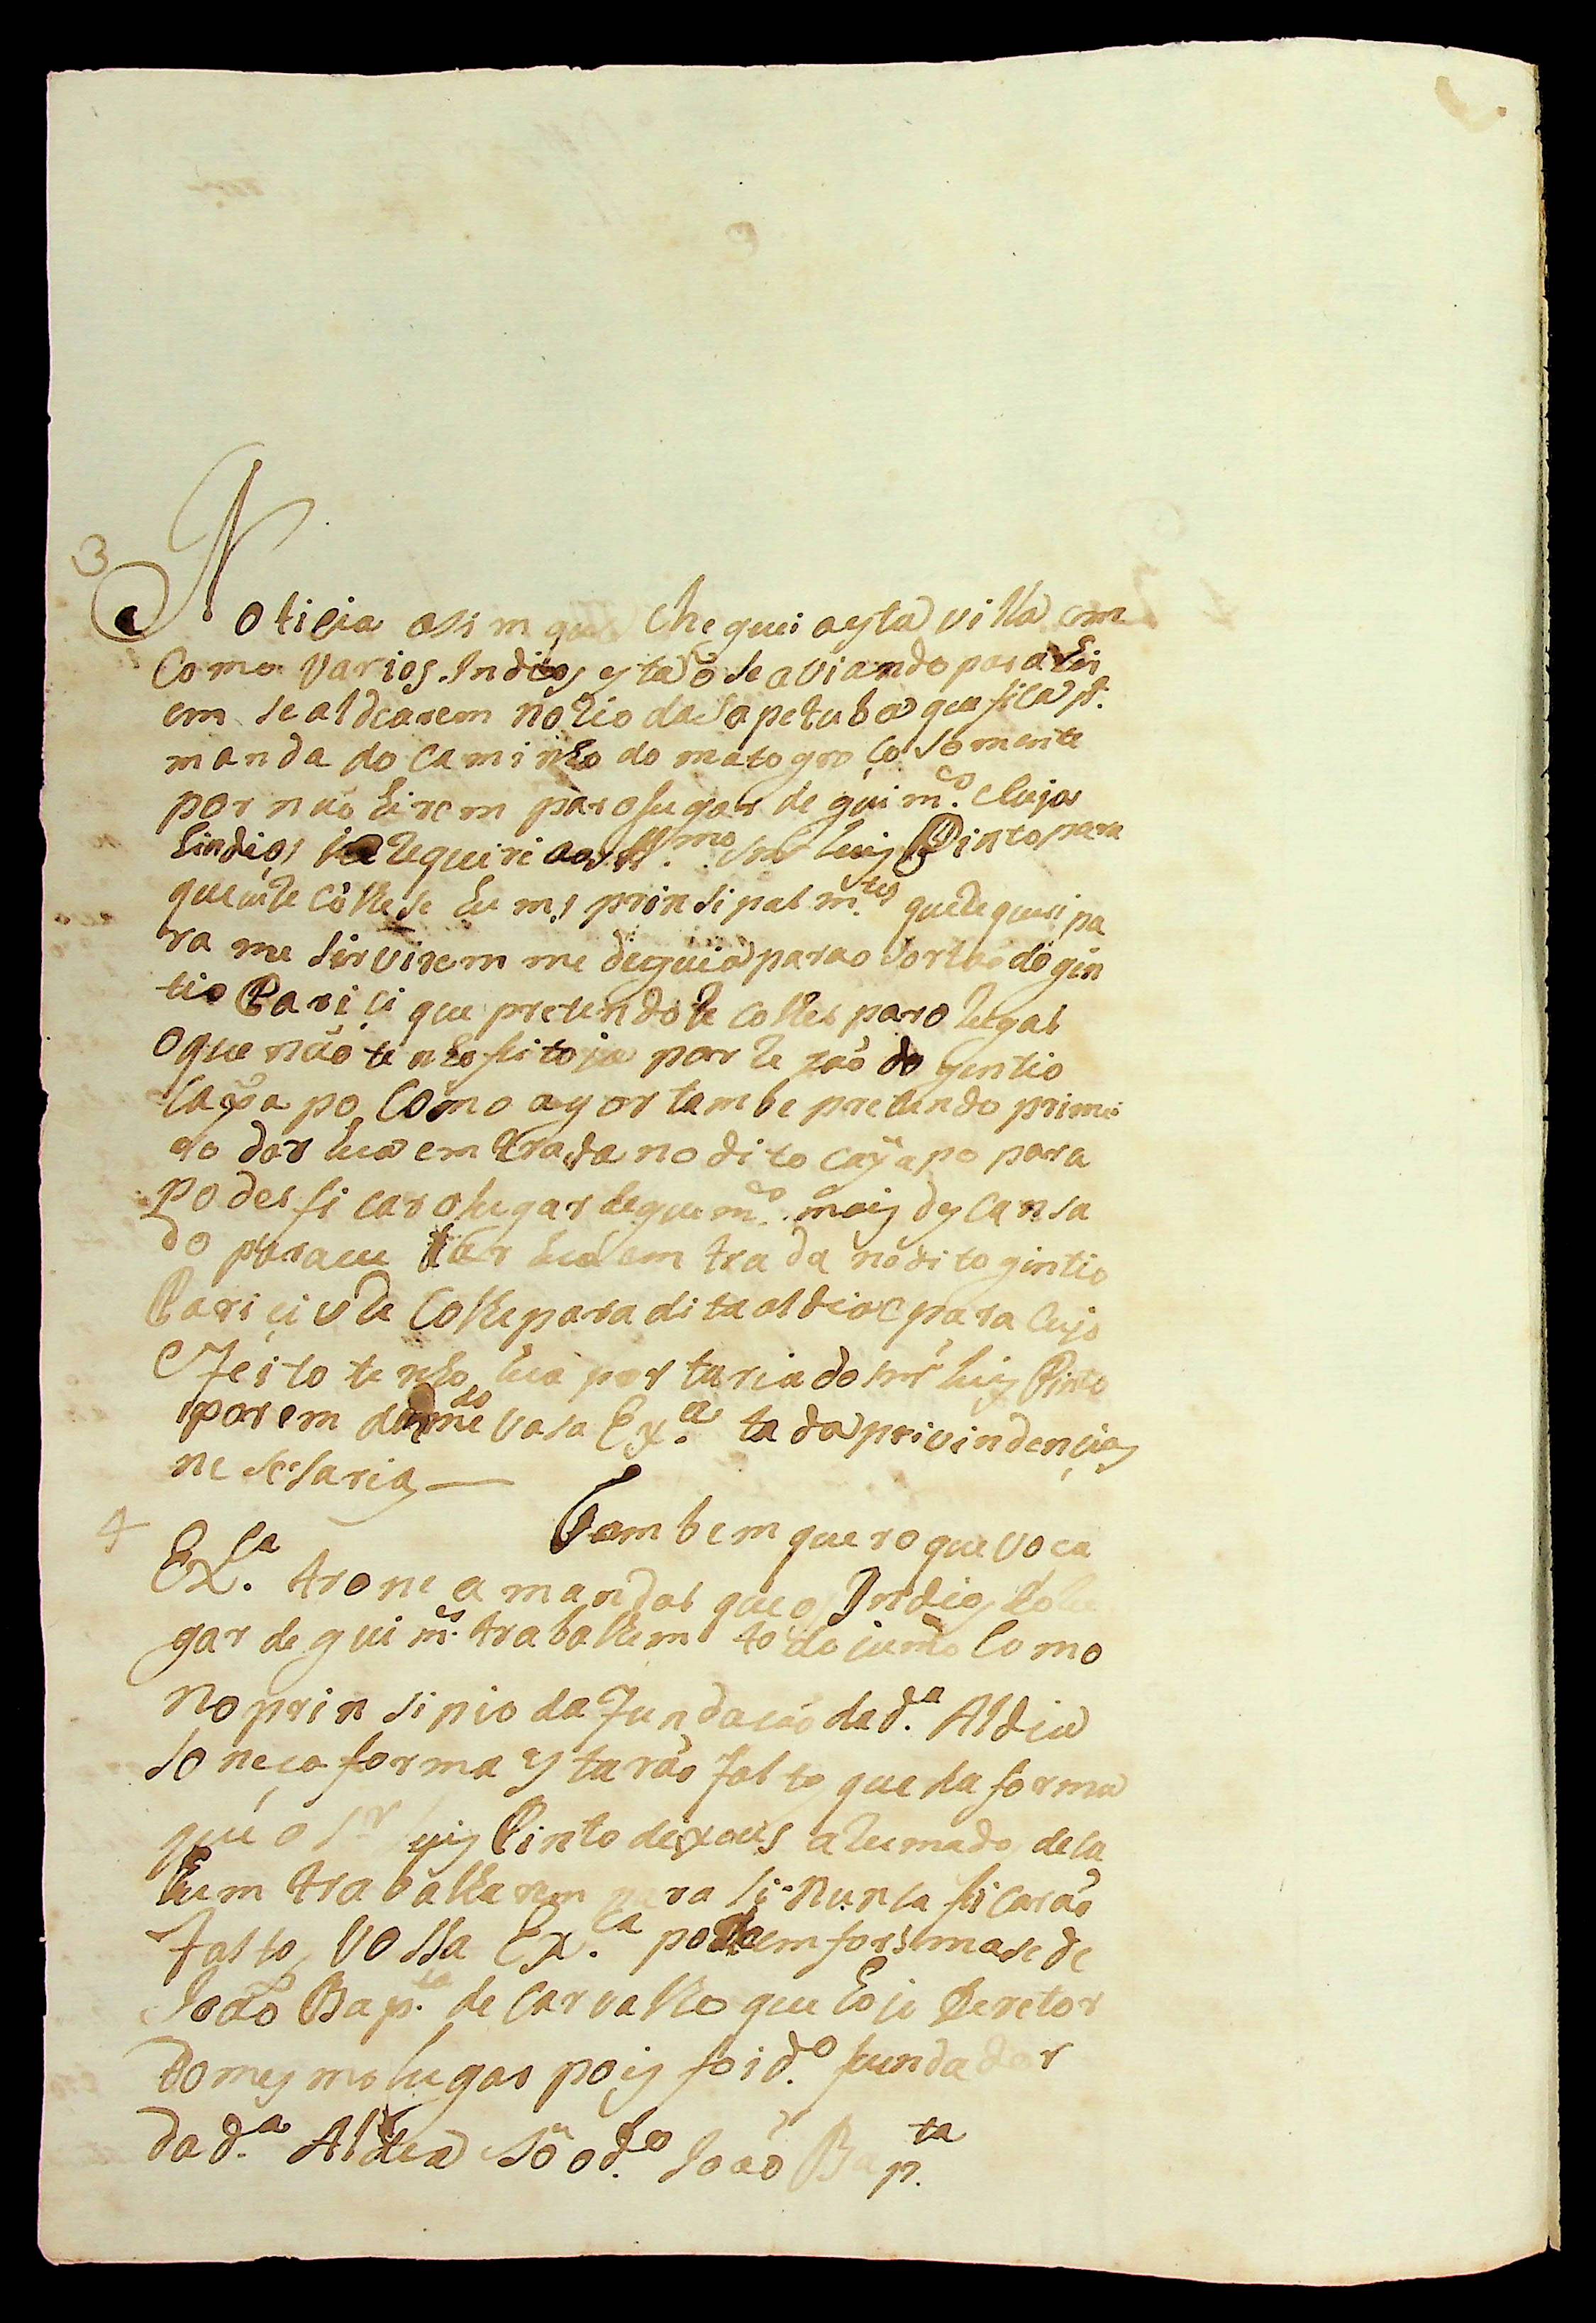 3
Noticia asim que cheguei aysta villa em
Como varios Indios estaõ se aviando para hir
em se aldearem no Rio da Sapetuba que fica p.ª
manda do caminho do mato groço somente
por naõ hirem paro lugar de guim.es Cujos
hindios Requiri ao Ill.mo Snr Luis Pinto para
que Colhese huns prinsipalm.tes que Requeri pa
ra me sirvirem me de guia para o Sertaõ do gen
tio Parici que pretendo Re colher paro lugar
o que naõ tenho feito ja por Re zaõ do gentio
Cayapo Como agor tambe pretendo prime
ro dar hua em trada no dito cayapo para
poder ficar o lugar de guim.es mais descansa
do para eu dar hua em trada no dito gentio
Parici e Re Colhe para dita aldea e para Cujo
efeito tenho hua portaria do Snr Luis Pinto
porem dando me Vosa Ex.ca toda privindencias
nesesarias
4
Tambem quero que voca
Ex.ca torne a mandar que os Indios do lu
gar de guim.es trabalhem todo jumto Como
no prinsipio da Fundacaõ da d.a Aldia
so neça forma estaraõ Falto que da forma
que o Sr Luis Pinto deixous aRumado de ca
hum trabalharem para si Nunca ficaraõ
Falto, Vossa Ex.ca pode emformase de
Joaõ Bap.ta de Carvalho que hoje Deretor
do mesmo lugar pois foi d.o fundador
da d.a Aldea So o d.o Joaõ Bap.ta